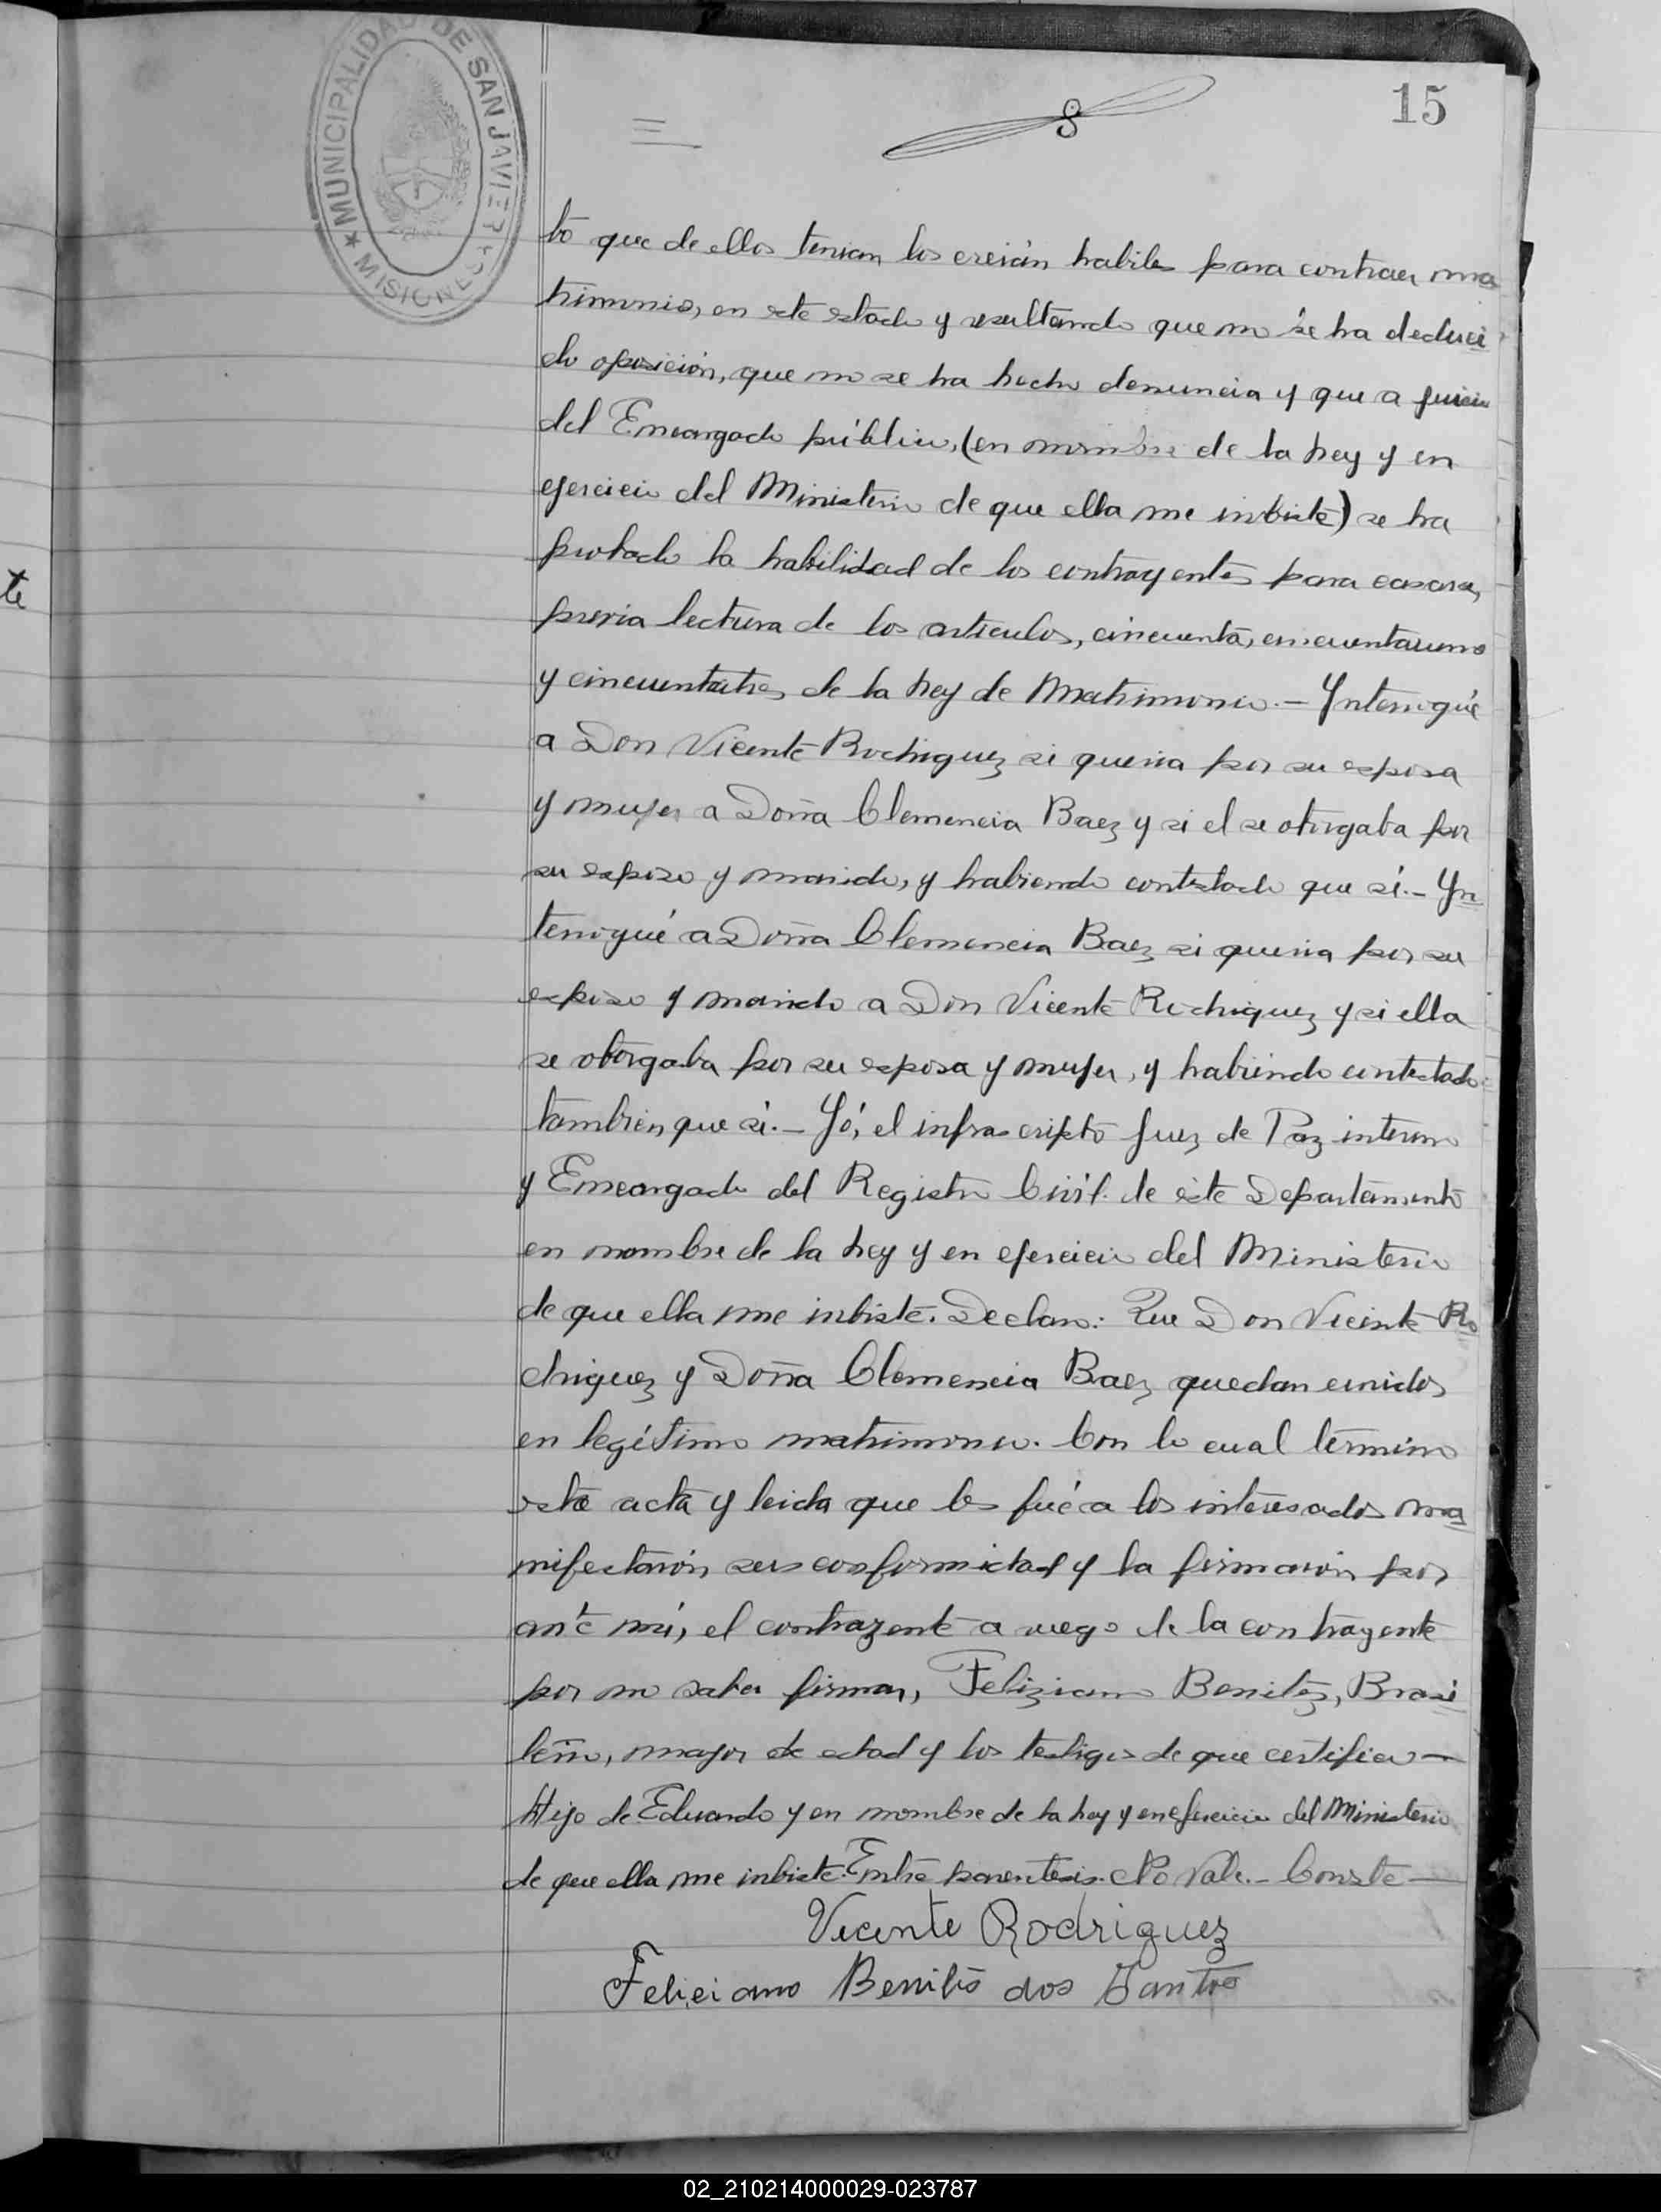 MUNICIPALIDAD DE SAN JAVIER
★ MISIONES ★
8
15
te
to que de ellos tenian los creián habiles para contraer ma
trimonio, en este estado y resultando que no se ha deduci
do oposición, que no se ha hecho denuncia y que a juicio
del Encargado público, (en nombre de la Ley y en
ejercicio del Ministerio de que ella me inbiste) se ha
probado la habilidad de los contrayentes para casarse,
previa lectura de los articulos, cincuenta, cincuentaiuno
y cincuentaitres de la Ley de Matrimonio.- Ynterrogué
a Don Vicente Rodriguez si queria por su esposa
y mujer a Doña Clemencia Baez y si el se otorgaba por
su esposo y marido, y habiendo contestado que sí.- Yn
terrogué a Doña Clemencia Baez si queria por su
esposo y marido a Don Vicente Rodriguez y si ella
se otorgaba por su esposa y mujer, y habiendo contestado
tambien que si.- Yó, el infrascripto Juez de Paz interino
y Encargado del Registro Civil de este Departamento
en nombre de la Ley y en ejercicio del Ministerio
de que ella me inbiste. Declaro: Que Don Vicente Ro
driguez y Doña Clemencia Baez quedan unidos
en legítimo matrimonio. Con lo cual termino
esta acta y leida que les fué a los interesados ma
nifestarón su conformidad y la firmarón por
ante mí, el contrayente a ruego de la contrayente
por no saber firmar, Feliziano Benitez, Brasi
leño, mayor de edad y los testigos de que certifico —
Hijo de Eduardo y en nombre de la Ley y en ejercicio del Ministerio
de que ella me inbiste. Entre parentesis. No Vale.- Conste —
Vicente Rodriguez
Feliciano Benitis dos Santos
02_210214000029-023787